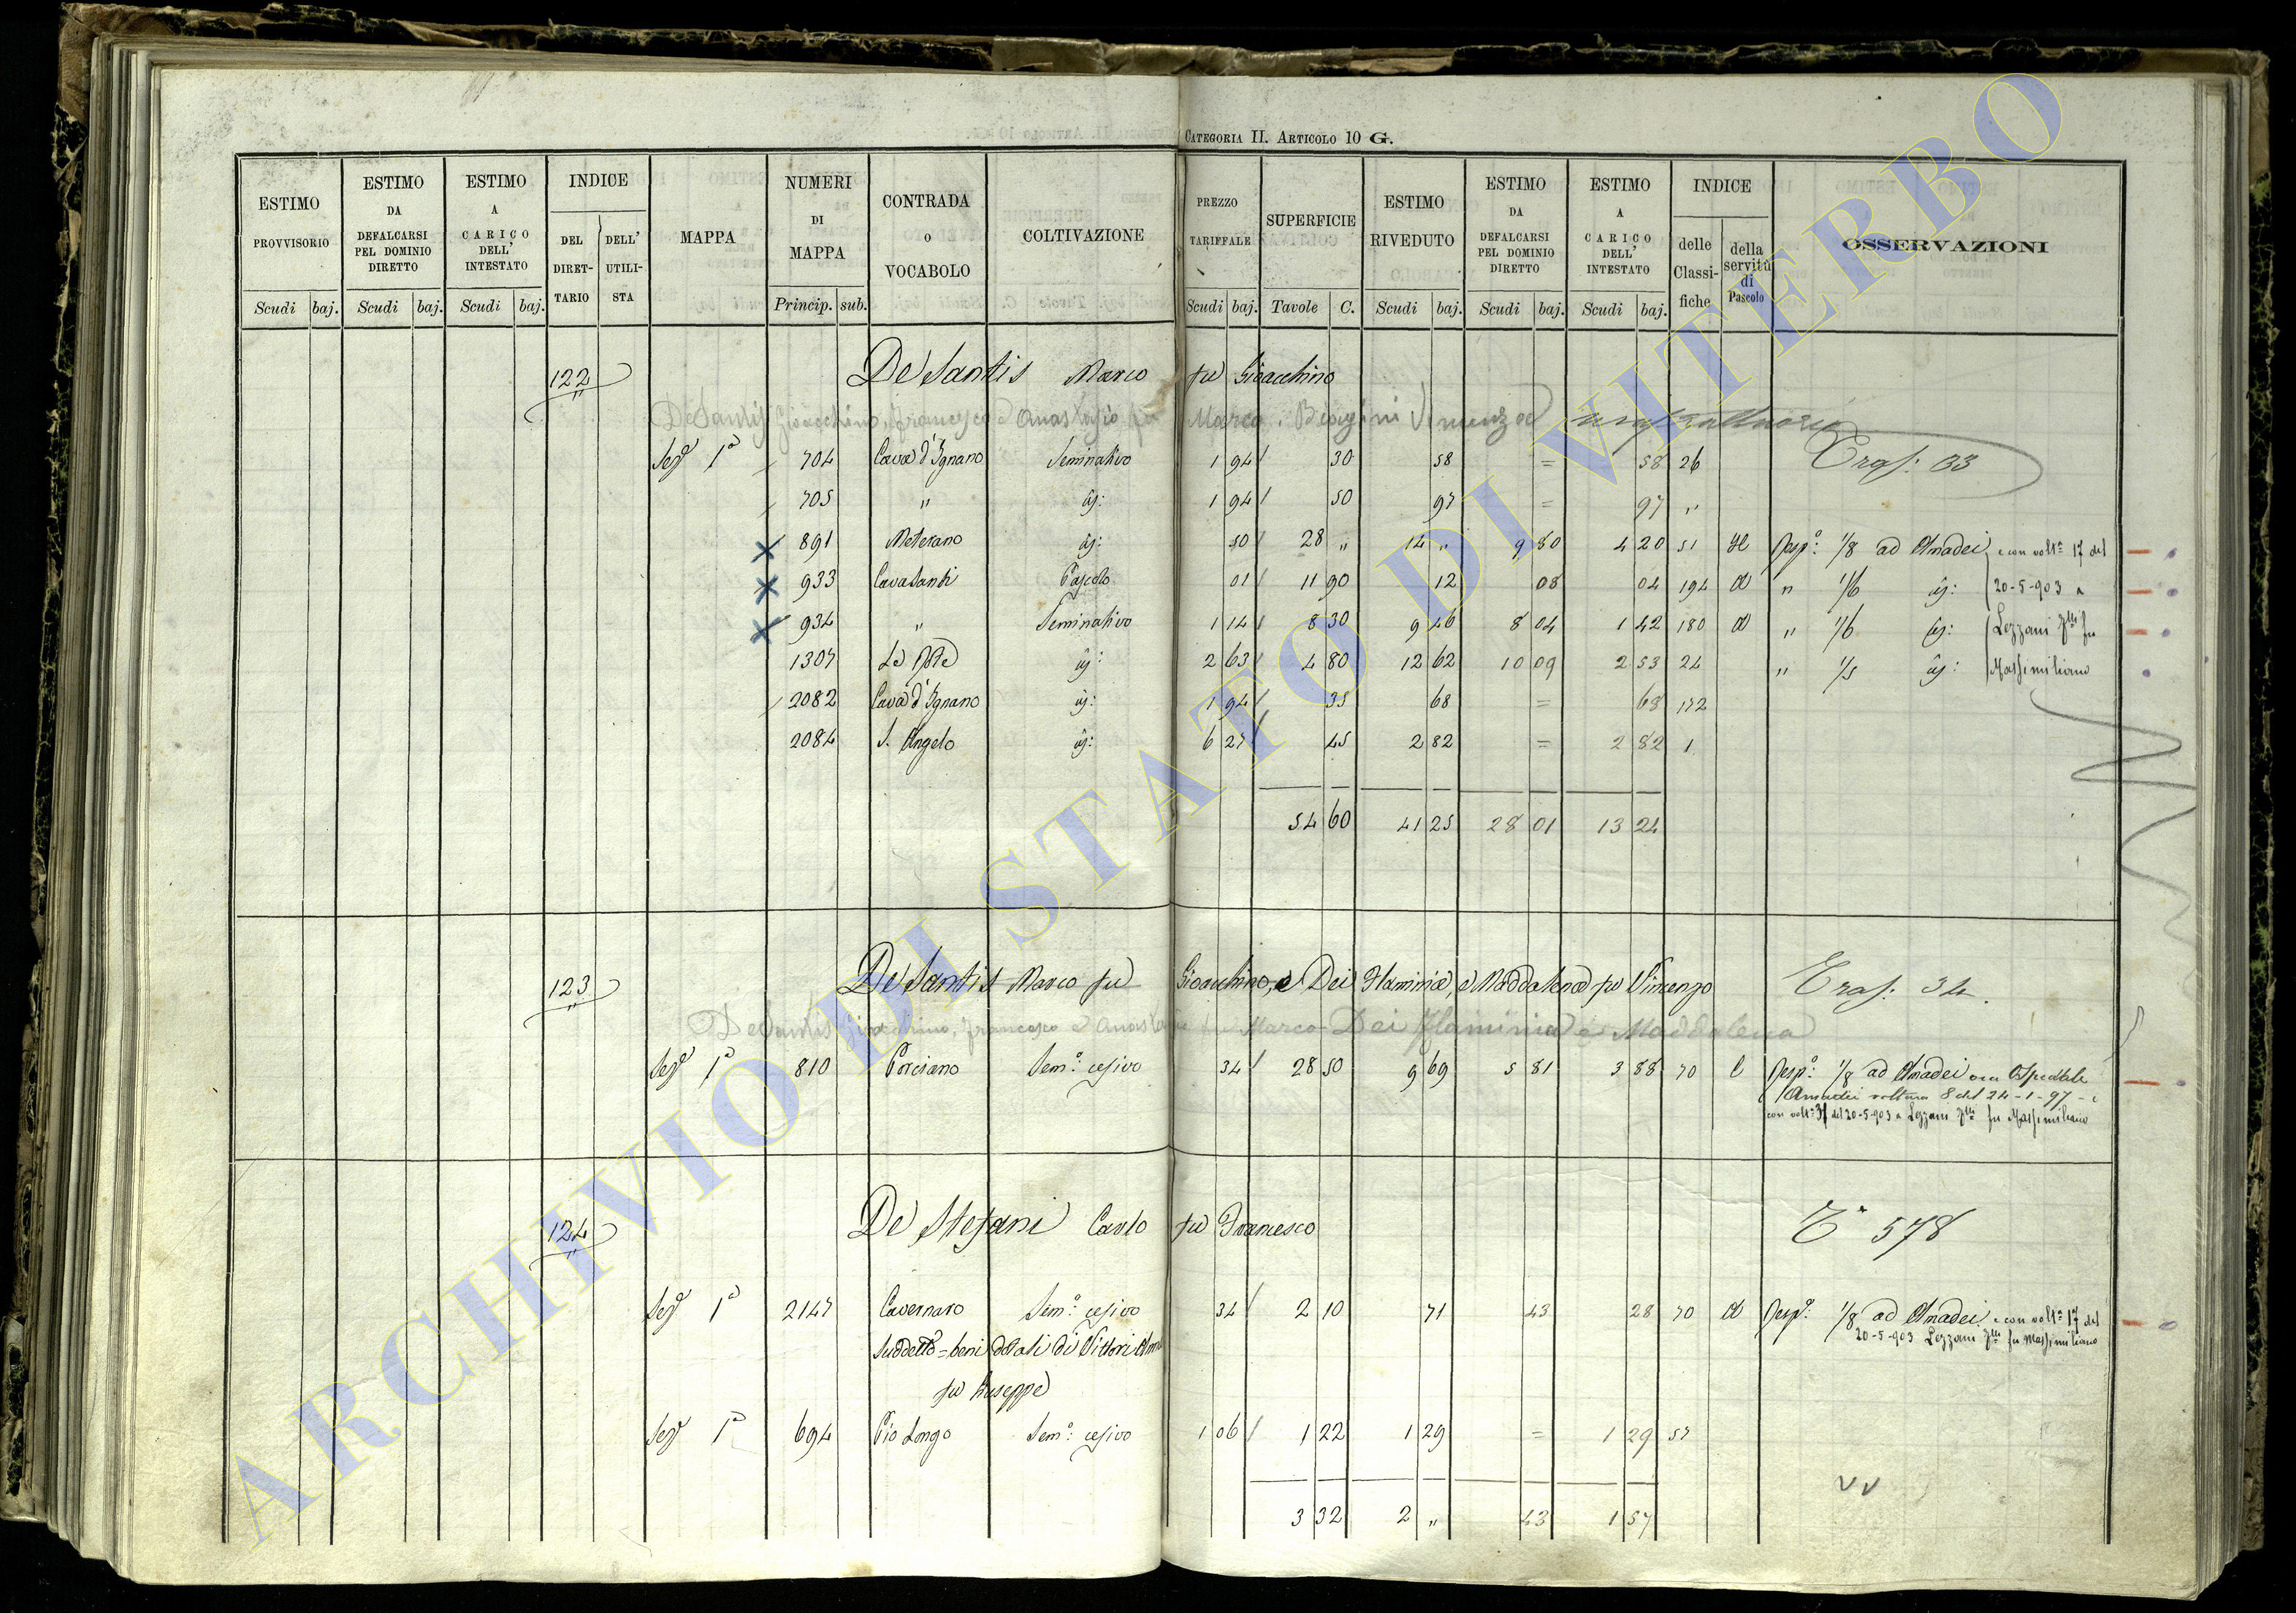 CATEGORIA II. ARTICOLO 10 G.
ESTIMO PROVVISORIO Scudi baj.
ESTIMO DA DEFALCARSI PEL DOMINIO DIRETTO Scudi baj.
ESTIMO A CARICO DELL' INTESTATO Scudi baj.
INDICE DEL DIRET-TARIO DELL' UTILI-STA
MAPPA
NUMERI DI MAPPA Princip. sub.
CONTRADA O VOCABOLO
COLTIVAZIONE
PREZZO TARIFFALE Scudi baj.
SUPERFICIE Tavole C.
ESTIMO RIVEDUTO Scudi baj.
ESTIMO DA DEFALCARSI PEL DOMINIO DIRETTO Scudi baj.
ESTIMO A CARICO DELL' INTESTATO Scudi baj.
INDICE delle Classi-fiche della servitù di Pascolo
OSSERVAZIONI
122 De Santis Marco fu Gioacchino
De Santis Gioacchino, Francesco e Anastasio fu Marco. Biagini Vincenza usufruttuaria
Sez. 1ª 704 Cava d'Ignano Seminativo 1 94 30 58 = 58 26 Tras: 33
705 " id: 1 94 50 97 = 97 "
891 Meterano id: 50 28 " 14 " 9 80 4 20 51 Risp: 1/8 ad Amadei e con voltª 17 del
933 Cavasanti Pascolo 01 11 90 12 08 04 194 a " 1/6 id: 20-5-903 a
934 " Seminativo 1 14 8 30 9 46 8 04 1 42 180 a " 1/6 id: Lezzani fu
1307 id: 2 63 4 80 12 62 10 09 2 53 24 " 1/5 id: Massimiliano
2082 Cava d'Ignano id: 1 94 35 68 = 68 172
2084 S. Angelo id: 6 27 45 2 82 = 2 82 1
54 60 41 25 28 01 13 24
123 De Santis Marco fu Gioacchino, e Dei Flaminia, e Maddalena fu Vincenzo Tras: 34.
De Santis Gioacchino, Francesco e Anastasio fu Marco Dei Flaminia e Maddalena
Sez. 1ª 810 Porciano Sem.º cesivo 34 28 50 9 69 5 81 3 88 70 Risp: 1/8 ad Amadei ora Ospedale
Amadei voltura 8 del 24-1-97 - e
con voltª 31 del 20-5-903 a Lezzani fu Massimiliano
124 De Stefani Carlo fu Francesco Tº 578
Sez. 1ª 2147 Cavernaro Sem.º cesivo 34 2 10 71 43 28 70 a Risp: 1/8 ad Amadei e con voltª 17 del
20-5-903 Lezzani fu Massimiliano
Suddetto = beni dotali di Vittori
fu Giuseppe
Sez. 1ª 694 Pio Longo Sem.º cesivo 1 06 1 22 1 29 = 1 29 57
3 32 2 " 43 1 57
ARCHIVIO DI STATO DI VITERBO